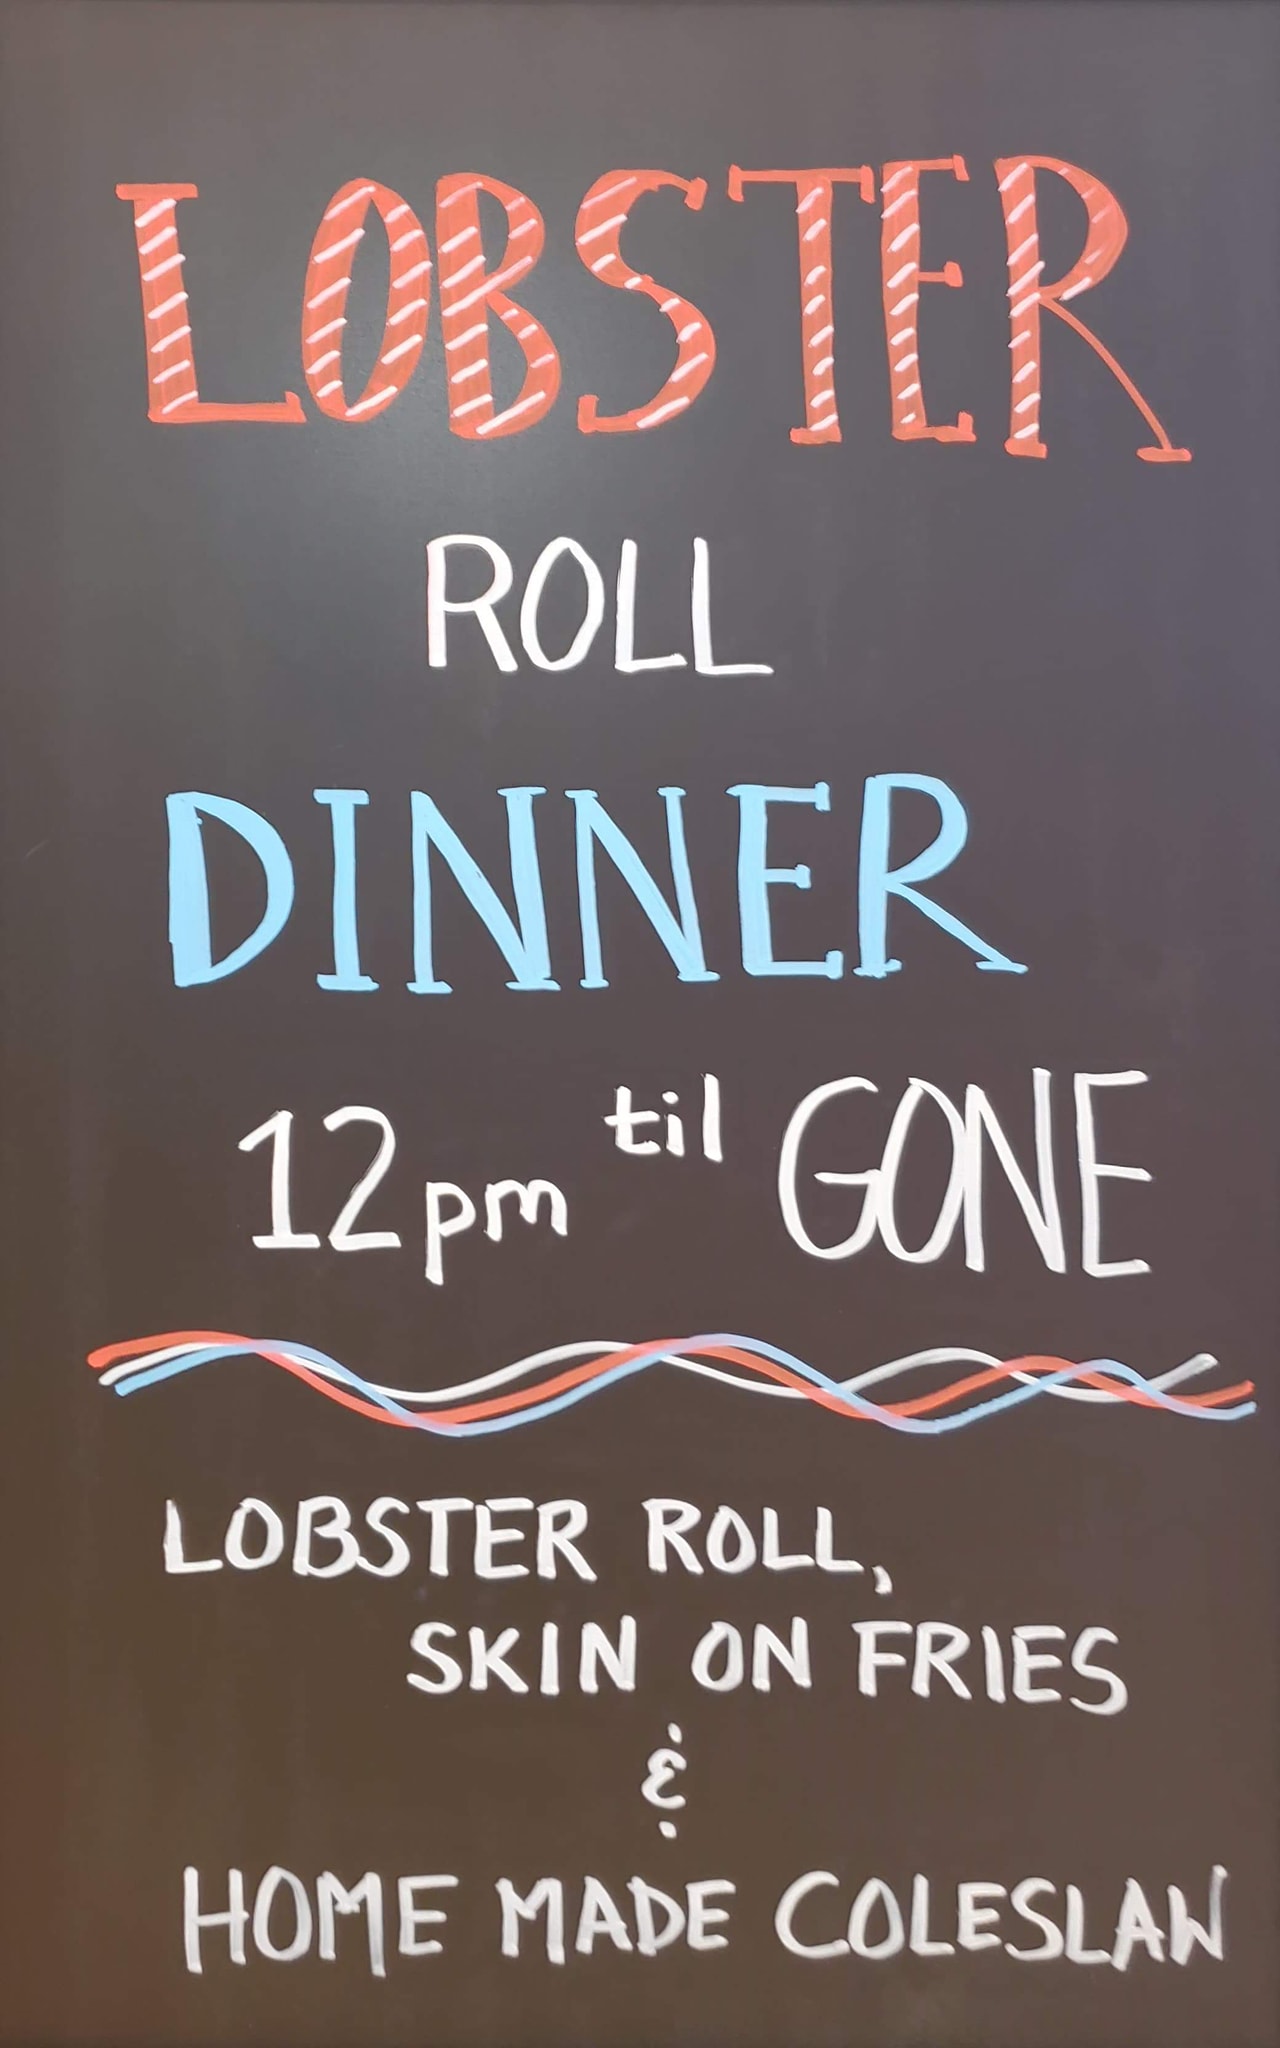 LOBSTER
ROLL
DINNER
12pm til GONE
LOBSTER ROLL,
SKIN ON FRIES
&
HOME MADE COLESLAW